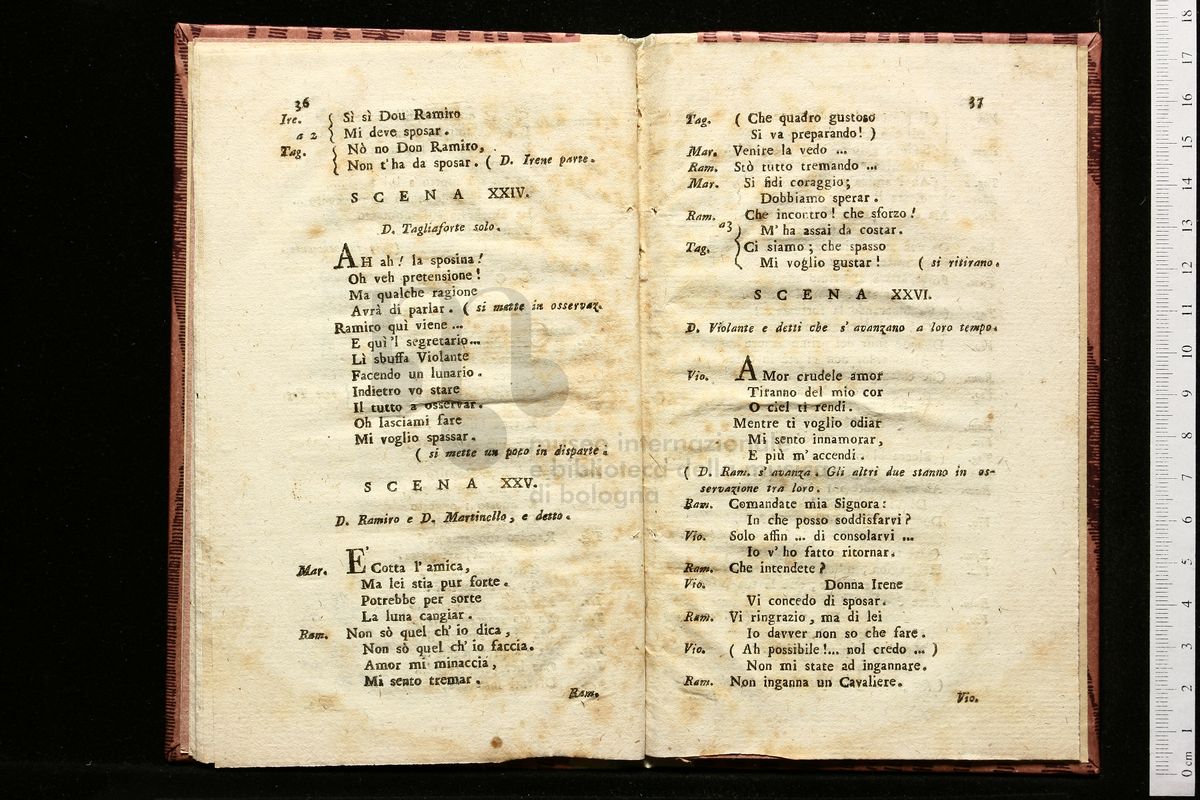 36
Ire. Sì sì Dou Ramiro
a 2 Mi deve sposar.
Tag. Nò no Don Ramiro,
Non t'ha da sposar. ( D. Irene parte.
SCENA XXIV.
D. Tagliaforte solo.
AH ah! la sposina!
Oh veh pretensione!
Ma qualche ragione
Avrà di parlar. ( si mette in osservaz.
Ramiro quì viene ...
E quì 'l segretario...
Lì sbuffa Violante
Facendo un lunario.
Indietro vo stare
Il tutto a osservar.
Oh lasciami fare
Mi voglio spassar.
( si mette un poco in disparte.
SCENA XXV.
D. Ramiro e D. Martinello, e detto.
Mar. E' Cotta l'amica,
Ma lei stia pur forte.
Potrebbe per sorte
La luna cangiar.
Ram. Non sò quel ch'io dica,
Non sò quel ch'io faccia.
Amor mi minaccia,
Mi sento tremar.
Ram.
37
Tag. ( Che quadro gustoso
Si va preparando! )
Mar. Venire la vedo ...
Ram. Stò tutto tremando ...
Mar. Si fidi coraggio;
Dobbiamo sperar.
Ram. Che incontro! che sforzo!
a3 M'ha assai da costar.
Tag. Ci siamo; che spasso
Mi voglio gustar! ( si ritirano.
SCENA XXVI.
D. Violante e detti che s'avanzano a loro tempo.
Vio. AMor crudele amor
Tiranno del mio cor
O ciel ti rendi.
Mentre ti voglio odiar
Mi sento innamorar,
E più m'accendi.
( D. Ram. s'avanza. Gli altri due stanno in os-
servazione tra loro.
Ram. Comandate mia Signora:
In che posso soddisfarvi?
Vio. Solo affin ... di consolarvi ...
Io v'ho fatto ritornar.
Ram. Che intendete?
Vio. Donna Irene
Vi concedo di sposar.
Ram. Vi ringrazio, ma di lei
Io davver non so che fare.
Vio. ( Ah possibile!... nol credo ... )
Non mi state ad ingannare.
Ram. Non inganna un Cavaliere.
Vio.
museo internazionale
e biblioteca della musica
di bologna
0 cm 1 2 3 4 5 6 7 8 9 10 11 12 13 14 15 16 17 18